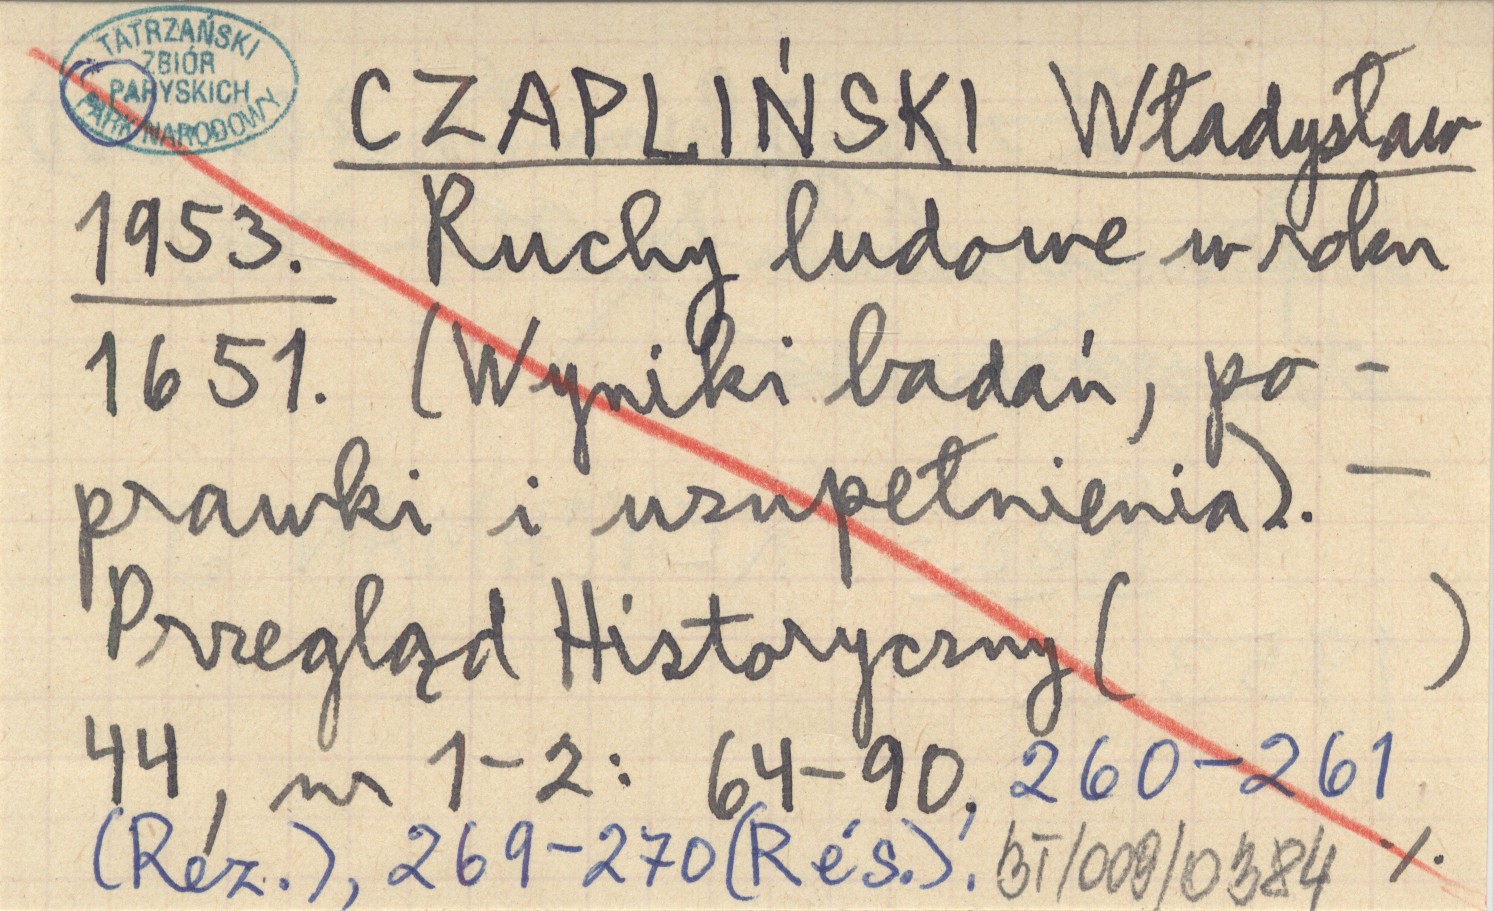 TATRZAŃSKI
ZBIÓR
PARYSKICH
PARK NARODOWY
CZAPLIŃSKI Władysław
1953. Ruchy ludowe w roku
1651. (Wyniki badań, po-
prawki i uzupełnienia). —
Przegląd Historyczny ( )
44, nr 1-2: 64-90, 260-261
(Réz.), 269-270 (Rés.)! ./.
/009/0384